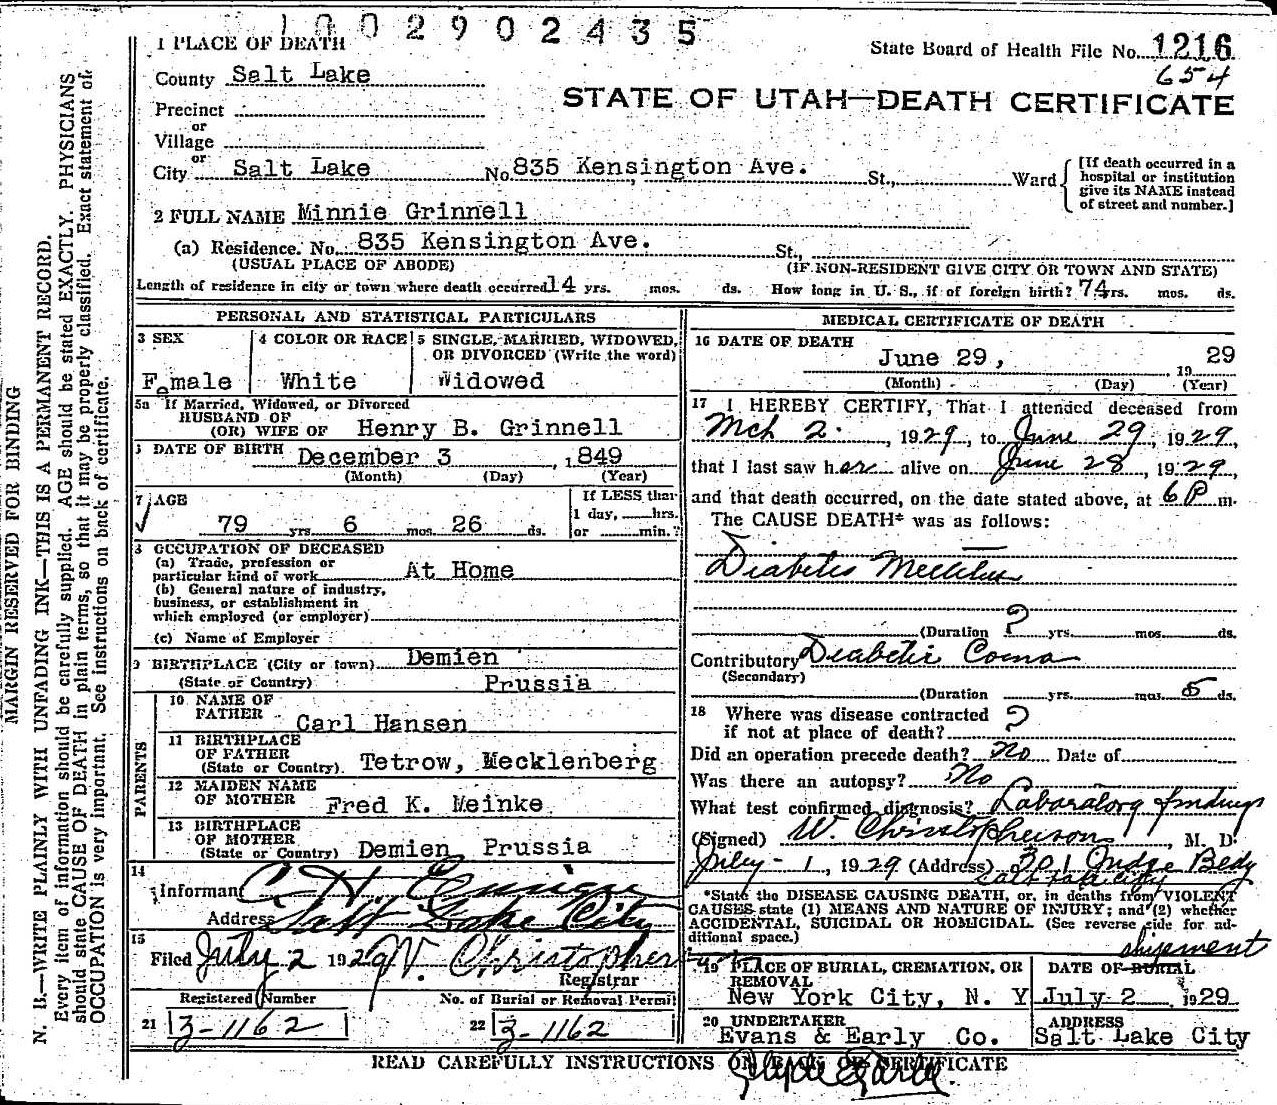 1002902435
1 PLACE OF DEATH
State Board of Health File No. 1216
654
County Salt Lake
STATE OF UTAH—DEATH CERTIFICATE
Precinct
or
Village
or
City Salt Lake No. 835 Kensington Ave. St., Ward
[If death occurred in a
hospital or institution
give its NAME instead
of street and number.]
2 FULL NAME Minnie Grinnell
(a) Residence. No. 835 Kensington Ave. St.,
(USUAL PLACE OF ABODE) (IF NON-RESIDENT GIVE CITY OR TOWN AND STATE)
Length of residence in city or town where death occurred 14 yrs. mos. ds. How long in U. S., if of foreign birth? 74 yrs. mos. ds.
PERSONAL AND STATISTICAL PARTICULARS
3 SEX
Female
4 COLOR OR RACE
White
5 SINGLE, MARRIED, WIDOWED,
OR DIVORCED (Write the word)
Widowed
5a If Married, Widowed, or Divorced
HUSBAND OF
(OR) WIFE OF Henry B. Grinnell
DATE OF BIRTH December 3, 1849
(Month) (Day) (Year)
7 AGE
79 yrs. 6 mos. 26 ds.
If LESS than
1 day, hrs.
or min.?
8 OCCUPATION OF DECEASED
(a) Trade, profession or
particular kind of work At Home
(b) General nature of industry,
business, or establishment in
which employed (or employer)
(c) Name of Employer
9 BIRTHPLACE (City or town) Demien
(State or Country) Prussia
PARENTS
10 NAME OF
FATHER Carl Hansen
11 BIRTHPLACE
OF FATHER
(State or Country) Tetrow, Mecklenberg
12 MAIDEN NAME
OF MOTHER Fred K. Meinke
13 BIRTHPLACE
OF MOTHER
(State or Country) Demien Prussia
14
Informant C H
Address Salt Lake City
15
Filed July 2 1929 W. Christopher
Registrar
Registered Number No. of Burial or Removal Permit
21 3-1162 22 3-1162
MEDICAL CERTIFICATE OF DEATH
16 DATE OF DEATH
June 29, 1929
(Month) (Day) (Year)
17 I HEREBY CERTIFY, That I attended deceased from
Mch 2, 1929, to June 29, 1929,
that I last saw her alive on June 28, 1929,
and that death occurred, on the date stated above, at 6 P m.
The CAUSE DEATH* was as follows:
Diabetis Mellitus
(Duration ? yrs. mos. ds.
Contributory Diabetic Coma
(Secondary)
(Duration yrs. mos. 5 ds.
18 Where was disease contracted
if not at place of death? ?
Did an operation precede death? No Date of
Was there an autopsy? No
What test confirmed diagnosis? Labaratory findings
(Signed) W. Christopherson, M. D.
July - 1, 1929 (Address) 301 Judge Bldg
Salt Lake City
*State the DISEASE CAUSING DEATH, or, in deaths from VIOLENT
CAUSES state (1) MEANS AND NATURE OF INJURY; and (2) whether
ACCIDENTAL, SUICIDAL OR HOMICIDAL. (See reverse side for ad-
ditional space.)
shipment
19 PLACE OF BURIAL, CREMATION, OR
REMOVAL
New York City, N. Y
DATE OF BURIAL
July 2, 1929
20 UNDERTAKER
Evans & Early Co.
ADDRESS
Salt Lake City
READ CAREFULLY INSTRUCTIONS ON BACK OF CERTIFICATE
MARGIN RESERVED FOR BINDING
N. B.—WRITE PLAINLY WITH UNFADING INK—THIS IS A PERMANENT RECORD.
Every item of information should be carefully supplied. AGE should be stated EXACTLY. PHYSICIANS
should state CAUSE OF DEATH in plain terms, so that it may be properly classified. Exact statement of
OCCUPATION is very important. See instructions on back of certificate.